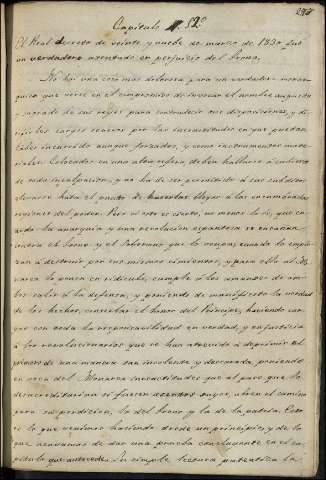 Capitulo 52º
El Real decreto de veinte y nueve de marzo de 1830 fué
un verdadero atentado en perjuicio del trono.
No hai una cosa mas dolorosa para un verdadero monar-
quico que verse en el compromiso de invocar el nombre augusto
y sagrado de sus reyes para contradecir sus disposiciones, y di-
rigirles cargos severos por las inexactitudes en que puedan
haber incurrido aunque forzados, y como instrumentos mate-
riales. Colocados en una alta esfera deben hallarse á cubierto
de toda inculpacion, y no ha de ser permitido á sus subditos
elevarse hasta el punto de llegar á las encumbradas
regiones del poder. Pero si esto es cierto, no menos lo es, que cu-
ando la anarquia y una revolucion espantosa se encañan
contra el trono y el Soberano que lo ocupa, cuando lo empie-
zan á destruir por sus mismos cimientos, y para ello al Mo-
narca lo ponen en ridiculo, cumple á los amantes de am-
bos salir á la defensa, y poniendo de manifiesto la verdad
de los hechos, consultar el honor del Principe, haciendo car-
gar con toda la responsabilidad en verdad, y en justicia
á los revolucionarios que se han atrevido á deprimir al
primero de una manera tan insolente y descarada, poniendo
en voca del Monarca inexactitudes que al paso que lo
desacreditarian si fuesen asertos suyos, abren el camino
para su perdicion, la del trono y la de la patria. Esto
es lo que venimos haciendo desde un principio, y de lo
que acavamos de dar una prueba concluyente en el ca-
pitulo que antecede. La simple lectura patentiza la